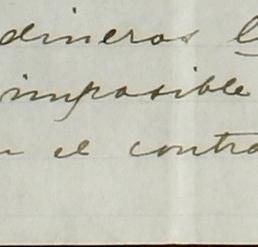 dineros
imposible
el contra